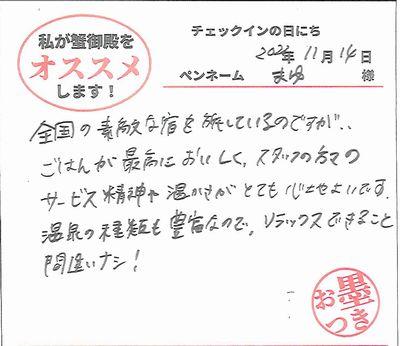 私が蟹御殿を
オススメ
します！
チェックインの日にち
年 11月14日
ペンネーム まゆ 様
全国の素敵な宿を旅しているのですが、、
ごはんが最高においしく、スタッフの方々の
サービス精神や温かさがとても心地よいです。
温泉の種類も豊富なので、リラックスできること
間違いナシ！
お墨つき